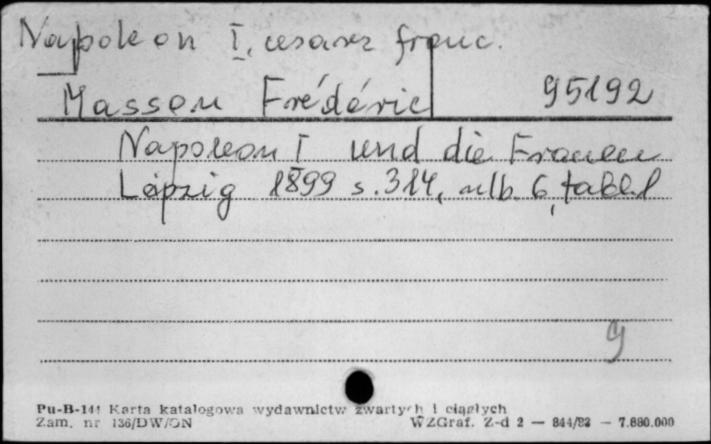 Napoleon I, cesarz franc.
Masson Frédéric 95192
Napoleon I und die Frauen
Leipzig 1899 s. 314, nlb. 6, tabl. 1
9
Pu-B-141 Karta katalogowa wydawnictw zwartych i ciągłych
Zam. nr 136/DW/ON WZGraf. Z-d 2 — 844/82 — 7.880.000